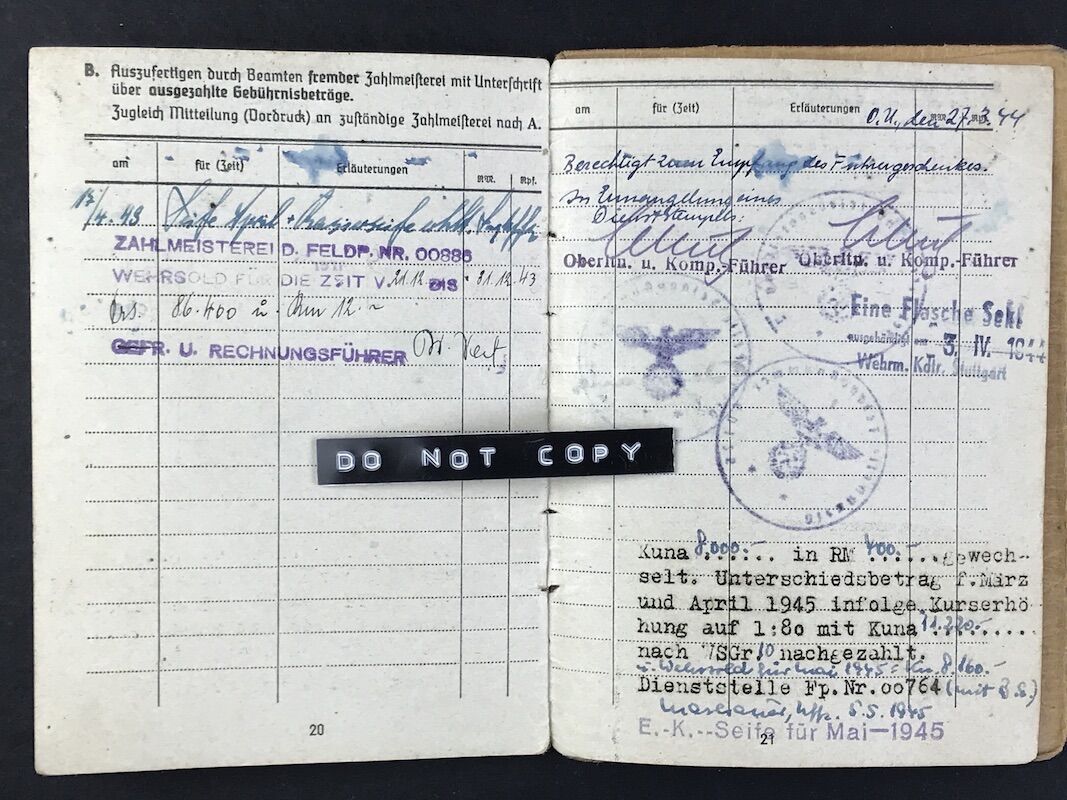 B. Auszufertigen durch Beamten fremder Zahlmeisterei mit Unterschrift
über ausgezahlte Gebührnisbeträge.
Zugleich Mitteilung (Vordruck) an zuständige Zahlmeisterei nach A.
am für (Zeit) Erläuterungen RM. Rpf.
/4.43 Seife April + Rasierseife
ZAHLMEISTEREI D. FELDP. NR. 00886
WEHRSOLD FÜR DIE ZEIT V. 21.12 BIS 31.12.43
86.400 Rm 12.-
GEFR. U. RECHNUNGSFÜHRER
20
am für (Zeit) Erläuterungen RM. Rpf.
O.U., den 27.3.44
Berechtigt zum Empfang des Führergeschenkes.
In Ermangelung eines
Dienststempels:
Oberltn. u. Komp.-Führer Oberltn. u. Komp.-Führer
Eine Flasche Sekt
ausgehändigt am 3. IV. 1944
Wehrm. Kdtr. Stuttgart
DO NOT COPY
Kuna 8.000.- in RM 400.- gewech-
selt. Unterschiedsbetrag f. März
und April 1945 infolge Kurserhö
hung auf 1:80 mit Kuna 11.220.-
nach VSGr. 10 nachgezahlt.
u. Wehrsold für Mai 1945 = Kn. 8.160.-
Dienststelle Fp.Nr.00764 (mit B.S.)
Uffz. 5.5.1945
E.-K.--Seife für Mai-1945
21